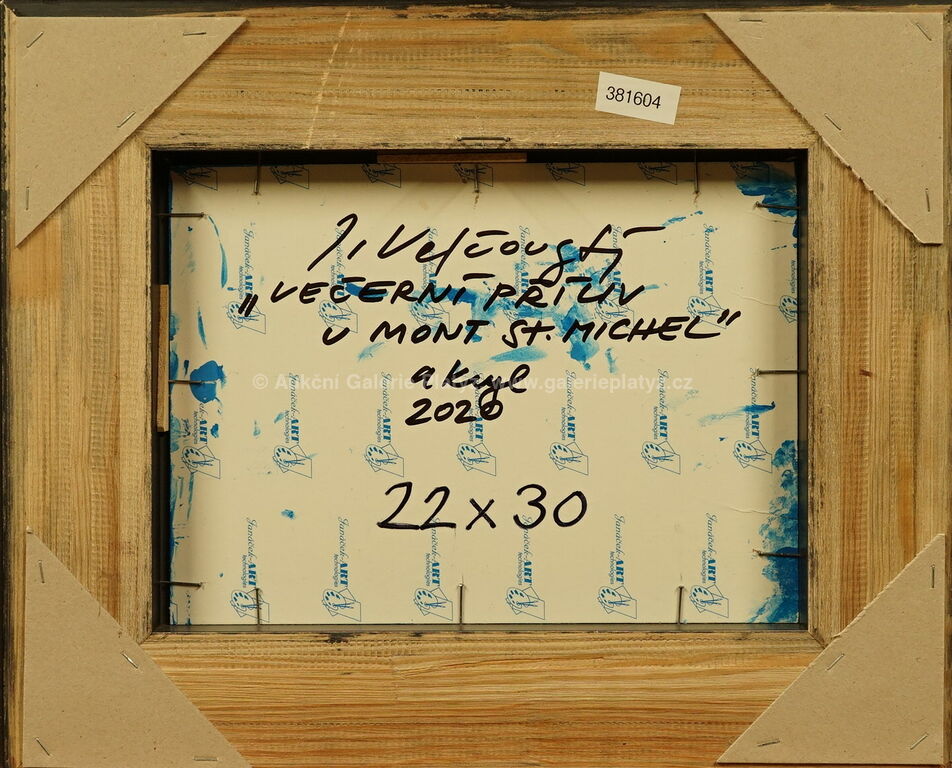 381604
J. Velčovský
„VEČERNÍ PŘÍLIV
U MONT St. MICHEL"
akryl
2020
22 x 30
© Aukční Galerie Platýz www.galerieplatyz.cz
Janáček-ART
technologies